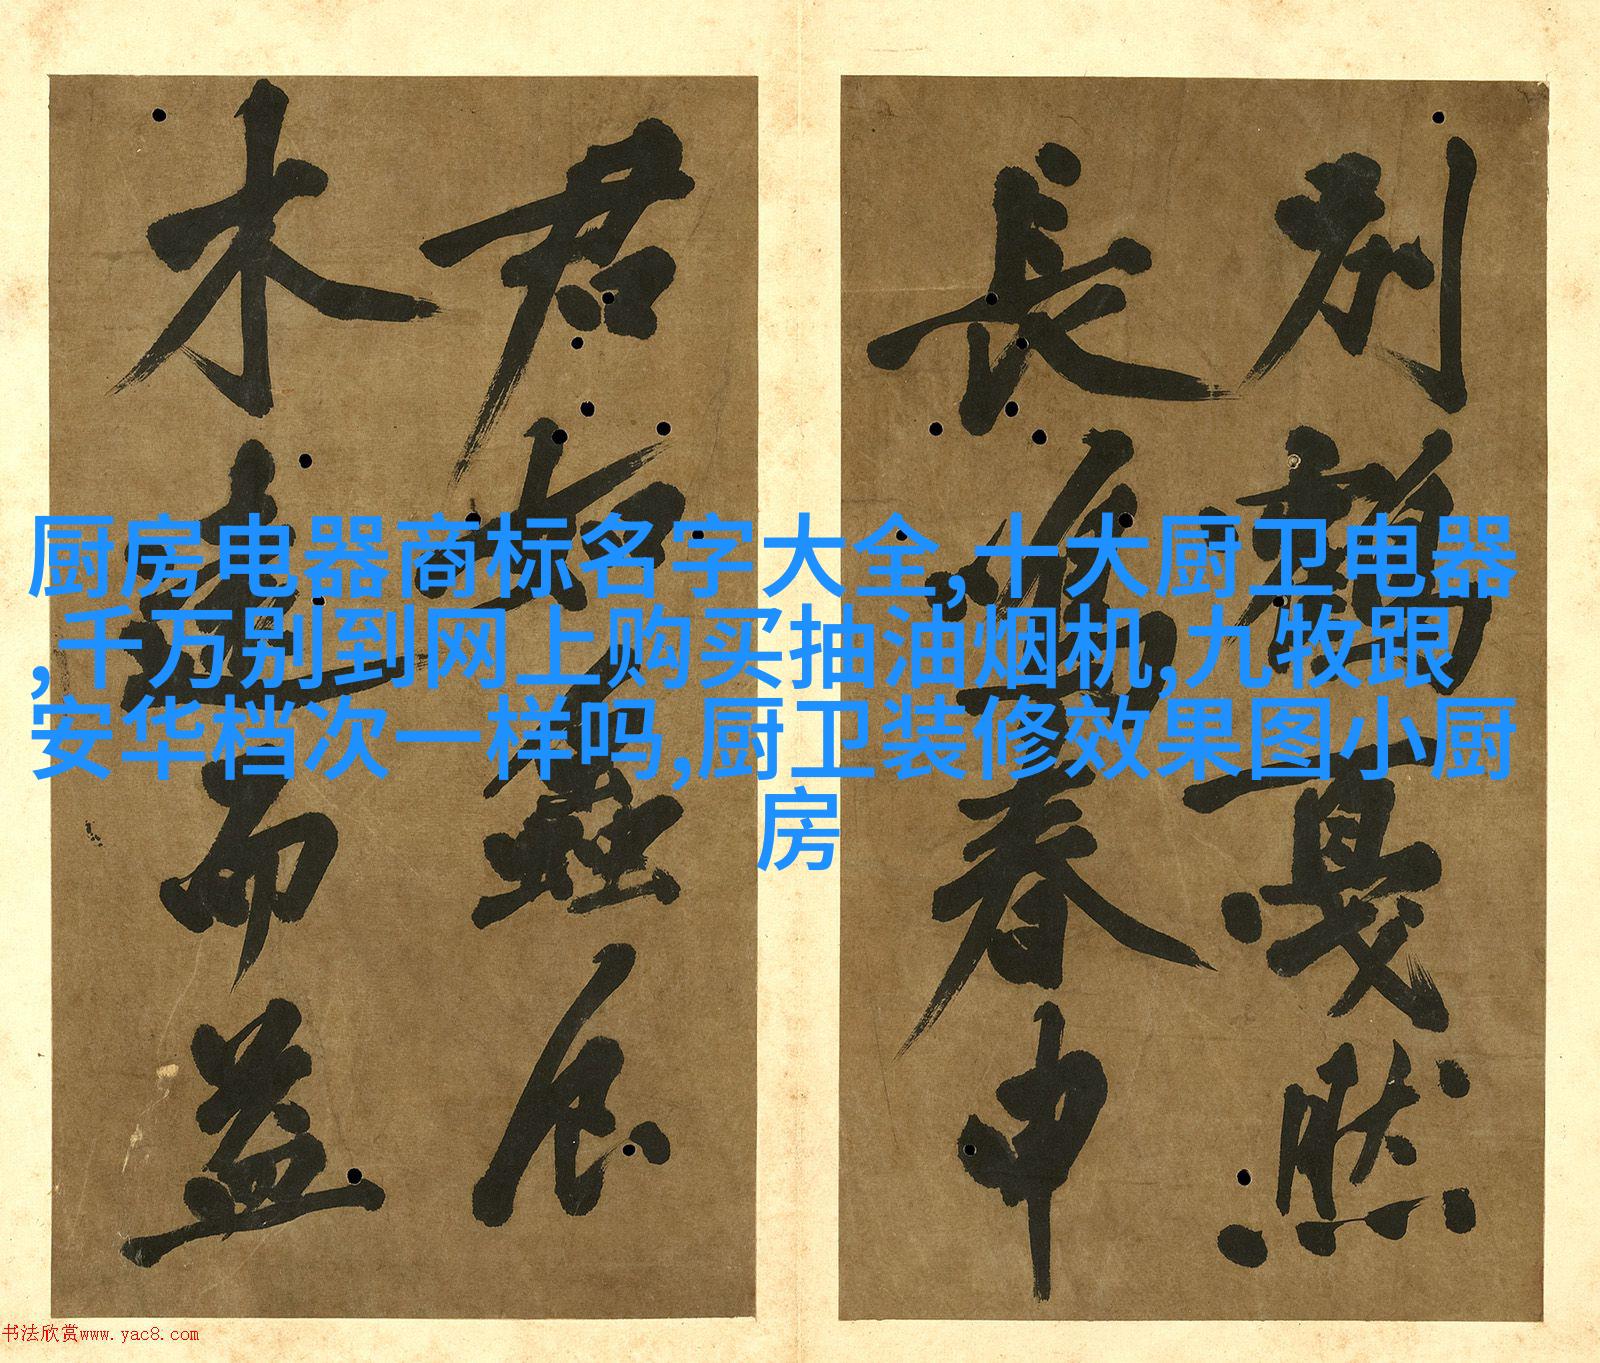 厨房电器商标名字大全,十大厨卫电器
,千万别到网上购买抽油烟机,九牧跟
安华档次一样吗,厨卫装修效果图小厨
房
別鶴一戛然
長為春申
君如蟲食
木而益
书法欣赏www.yac8.com